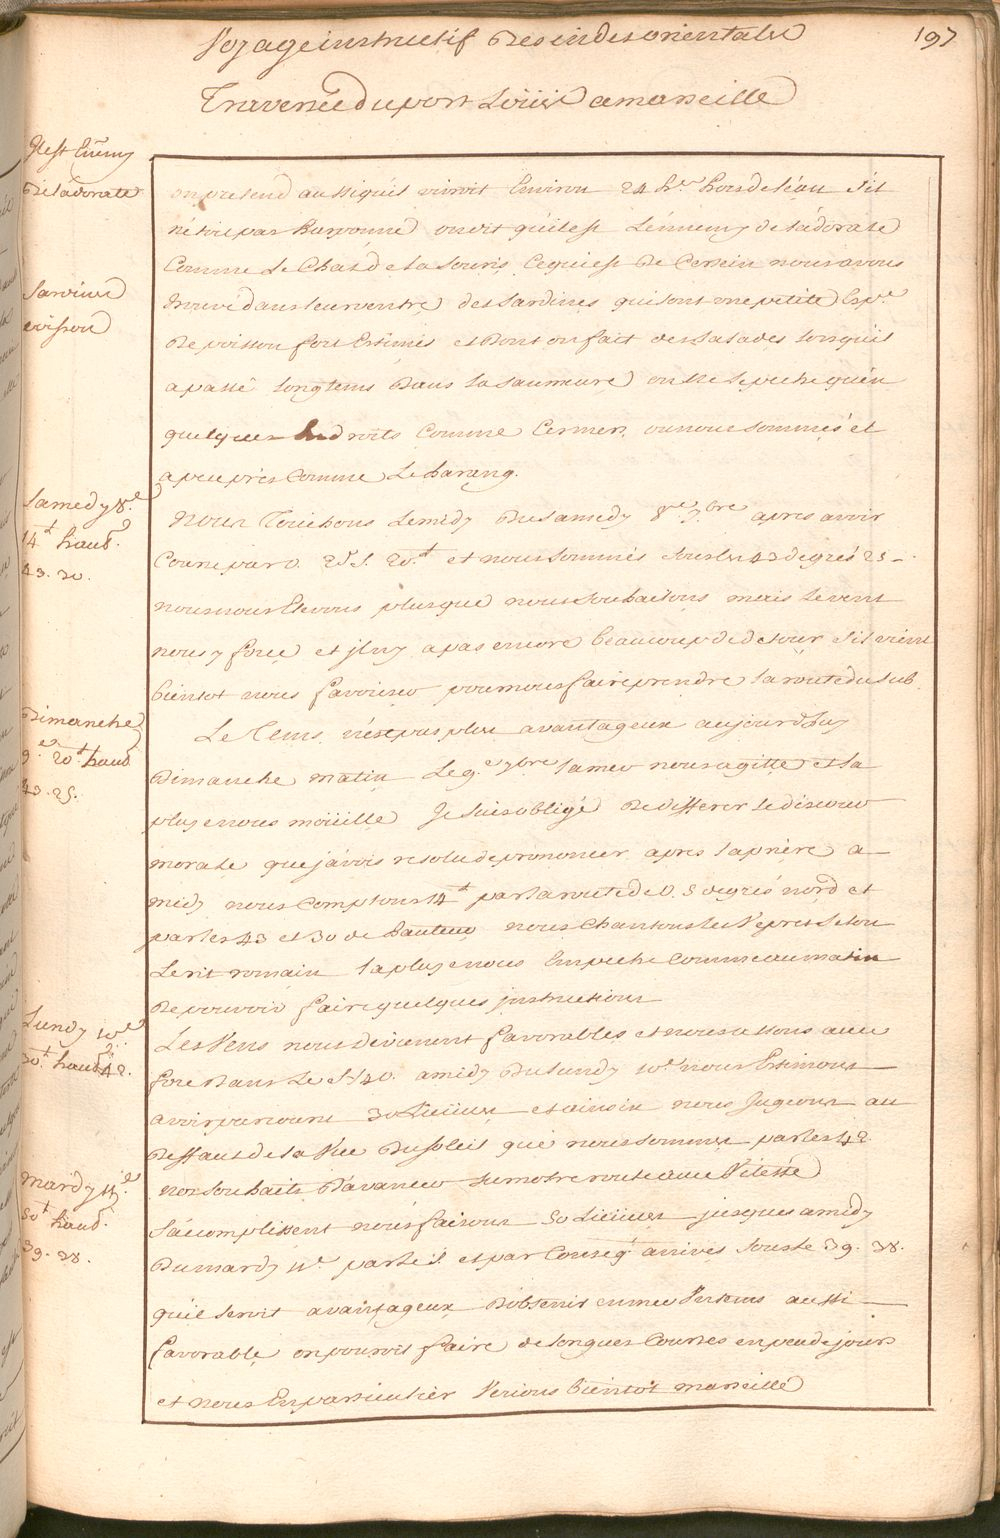 Voyage instructif Des indes orientales 197
Traversée du port Loüis a marseille
Il est Ennemy
De la dorate
on pretend aussi qu'il vivroit Environ 24 h.res hors de l'eau s'il
n'étoit pas harponné on dit qu'il est L'énnemy de la dorate
Comme Le Chat de la souris Ce qui est De Certain nous avons
trouvé dans leur ventre des sardines qui sont une petite Esp.ce
Sardine
poisson
De poisson fort Estimés et Dont on fait des salades lorsqu'il
a passé longtems Dans la saumure on ne le peche qu'en
quelques Endroits Comme Cermer ou nous sommes et
a peu prés Comme Le harang.
Samedy 8.e
14.t haud.r
43. 30.
Nous Touchons Le midy Du samedy 8.e 7.bre apres avoir
Couru par O. 20.t et nous sommes sous les 43 degrés 25 -
nous nous Elevons plus que nous souhaitons mais le vent
nous y force et il n'y a pas encore beaucoup de detour s'il vient
bientot nous favoriser pour nous faire prendre la route du sud
Dimanche
9.e 20.t haud
43. 25.
Le Tems n'est pas plus avantageux aujourd'huy
Dimanche matin Le 9.e 7bre la mer nous agitte et la
pluye nous moüille Je suis obligé De differer le discours
morale que j'avois resolu de prononcer apres la priere a -
midy nous Comptons 14.t par la route de O. 5 degrés nord et
par les 43 et 30 de hauteur nous chantons les Vepres selon
Le rit romain la pluye nous Empeche Comme au matin
De pouvoir faire quelques jnstructions
Lundy 10.e
30.t haud.r 42.
Les Vens nous devienent favorables et nous allons avec
force Dans Le S. 1/4 O. a midy Du lundy 10.e nous Estimons -
avoir parcouru 30 Lieües et ainsin nous Jugeons au
Deffaut de la Vue Du soleil que nous sommes par les 42.
Mardy 11.e
50.t haud.
39. 38.
nos souhaits D'avancer sur notre route avec Vitesse
s'accomplissent nous faisons 50 Lieües jusques a midy
Du mardy 11.e par le S. et par Conseq.t arrivés sous le 39. 38.
qu'il seroit avantageux D'obtenir en mer Un tems aussi -
favorable on pouroit faire de longues Courses en peu de jours
et nous En particulier Verions bientôt marseille